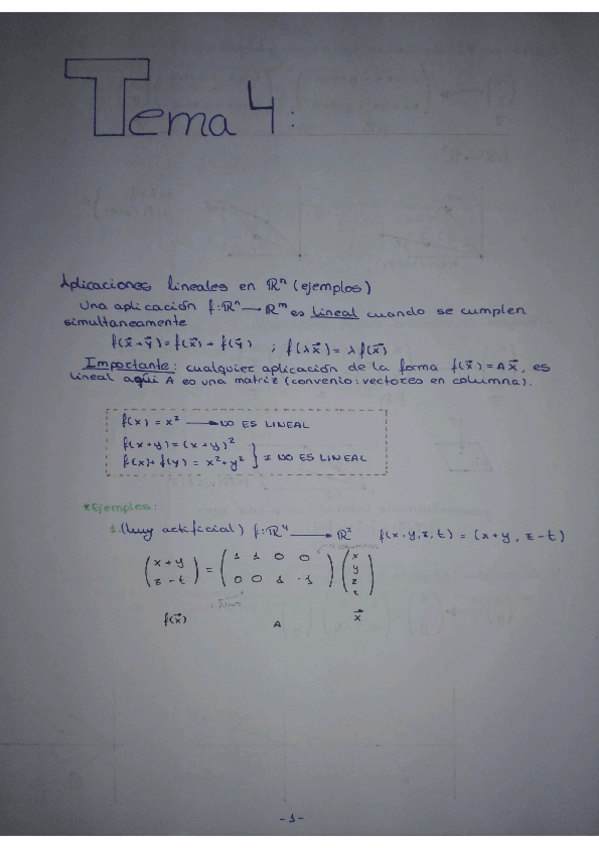 Tema 4:
Aplicaciones lineales en ℝⁿ (ejemplos)
Una aplicación f: ℝⁿ → ℝᵐ es lineal cuando se cumplen
simultaneamente
f(x⃗+y⃗) = f(x⃗) + f(y⃗) ; f(λx⃗) = λ f(x⃗)
Importante: cualquier aplicación de la forma f(x⃗) = Ax⃗, es
lineal aqui A es una matriz (convenio: vectores en columna).
f(x) = x² → NO ES LINEAL
f(x+y) = (x+y)²
f(x)+f(y) = x²+y² } ≠ NO ES LINEAL
*Ejemplos:
1. (Muy artificial) f: ℝ⁴ → ℝ² f(x,y,z,t) = (x+y, z-t)
4 columnas
(x+y) = (1 1 0 0) (x
(z-t) (0 0 1 -1) y
z
f(x⃗) A x⃗
-1-